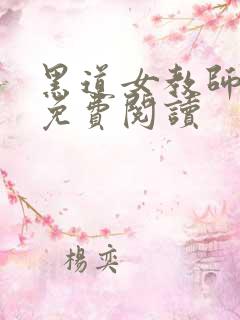 黑道女教師
免費閱讀
楊奕